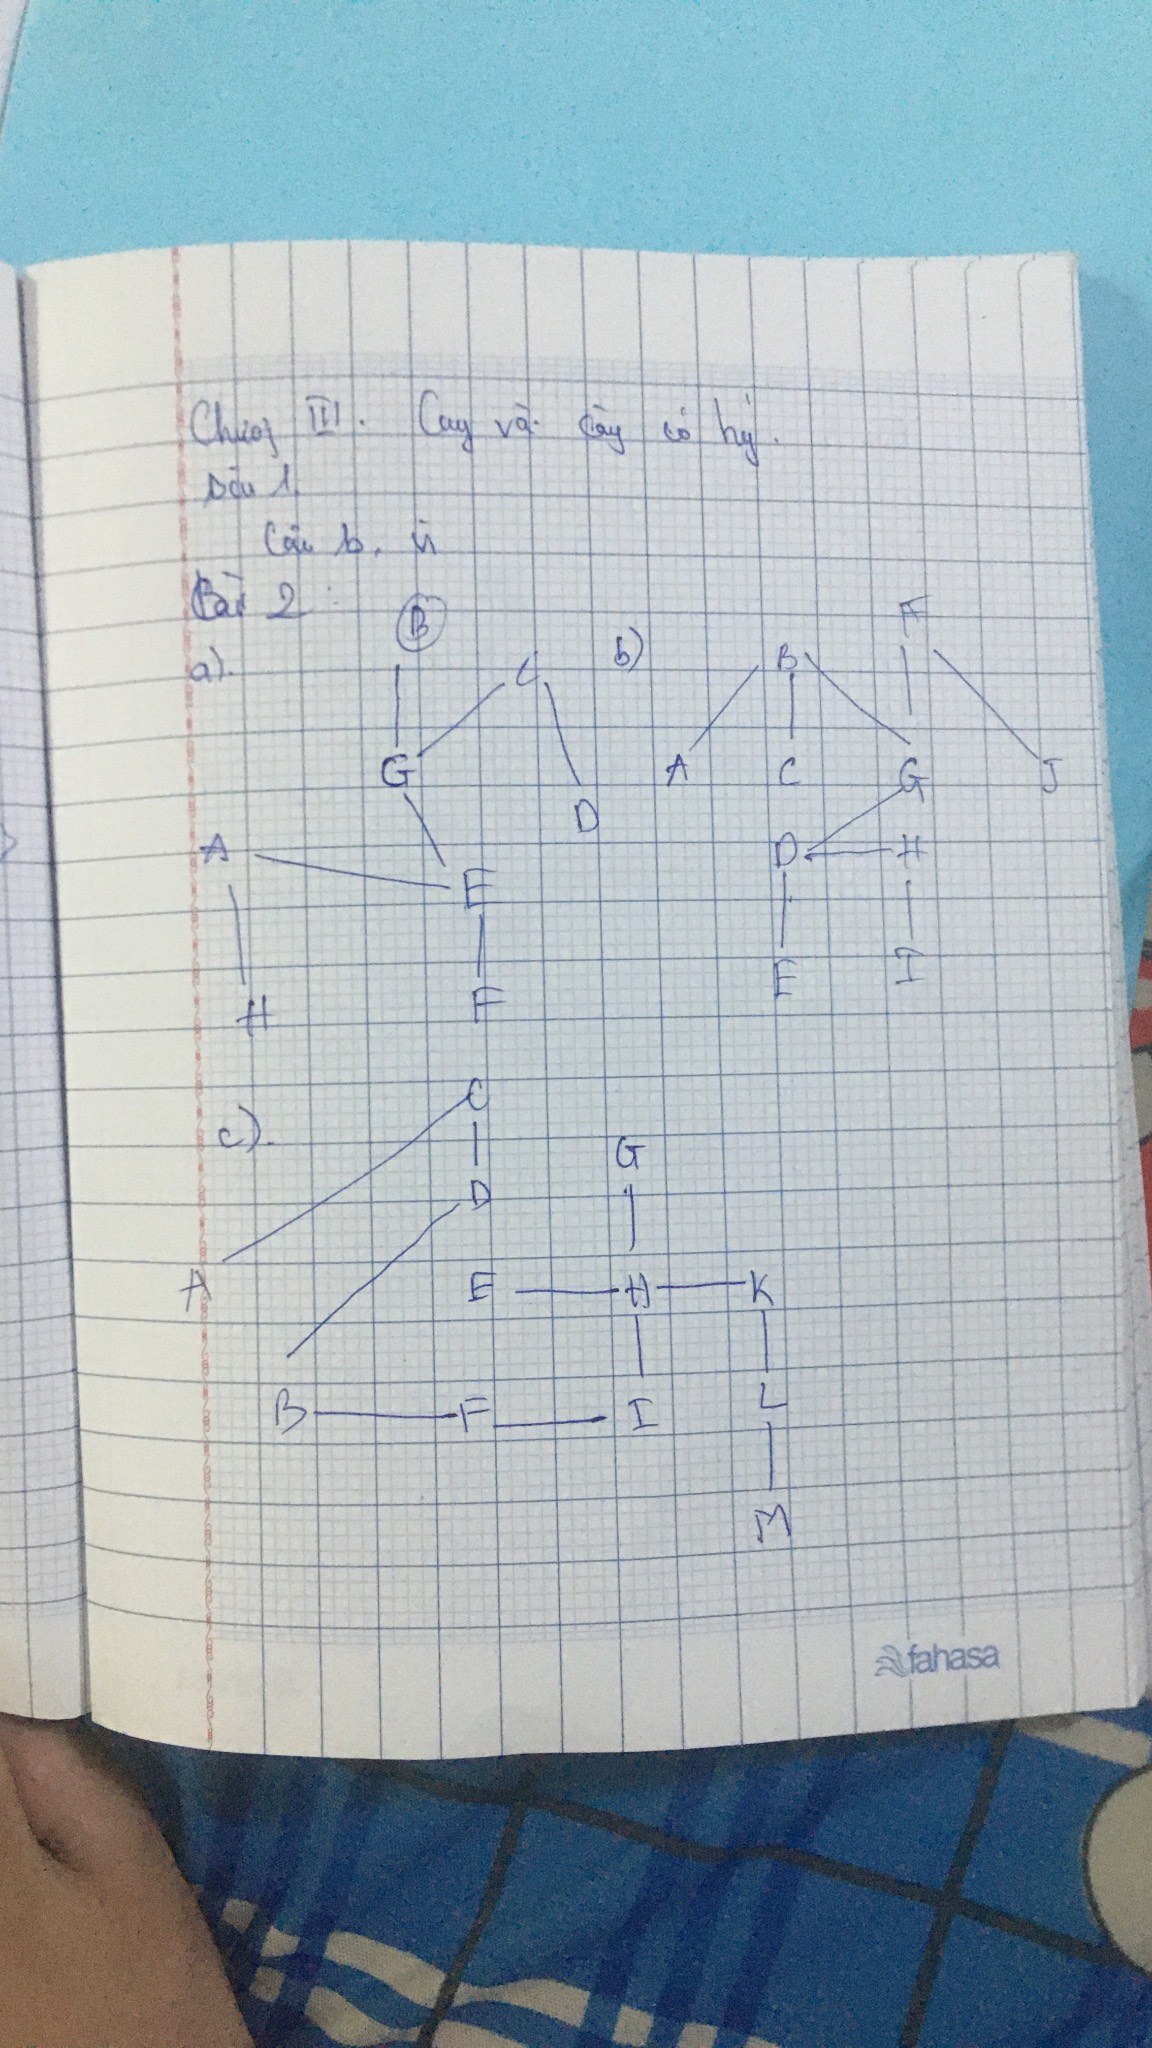 Chương III. Cây và cây có hg.
Bài 1.
Câu b, vì
Bài 2:
a).
B
C
G
D
A
E
H
F
b)
F
B
A
C
G
J
D
H
E
I
c).
C
G
D
A
E H K
B F I L
M
fahasa